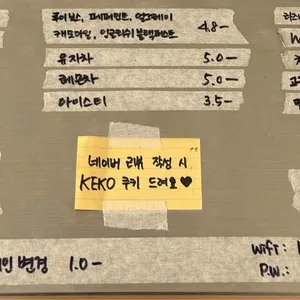 루이보스, 페퍼민트, 얼그레이
캐모마일, 잉글리쉬블랙퍼스트 4.8-
유자차 5.0-
레몬차 5.0-
아이스티 3.5-
네이버 리뷰 작성 시
KEKO 쿠키 드려요♥
변경 1.0-
Wifi:
P.W.: